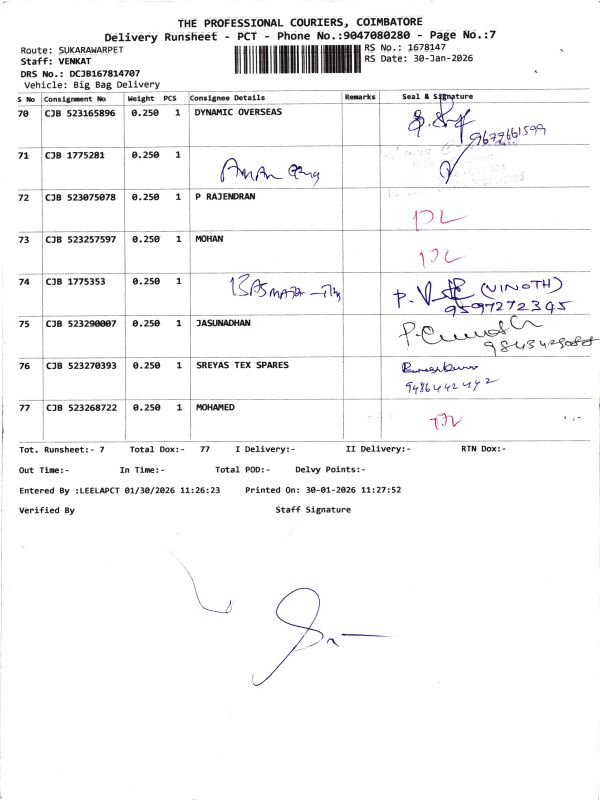 THE PROFESSIONAL COURIERS, COIMBATORE
Delivery Runsheet - PCT - Phone No.:9047080280 - Page No.:7
Route: SUKARAWARPET
RS No.: 1678147
Staff: VENKAT
RS Date: 30-Jan-2026
DRS No.: DCJB167814707
Vehicle: Big Bag Delivery
S No Consignment No Weight PCS Consignee Details Remarks Seal & Signature
70 CJB 523165896 0.250 1 DYNAMIC OVERSEAS
9677661599
71 CJB 1775281 0.250 1
72 CJB 523075078 0.250 1 P RAJENDRAN
DL
73 CJB 523257597 0.250 1 MOHAN
DL
74 CJB 1775353 0.250 1 (VINOTH)
9597272345
75 CJB 523290007 0.250 1 JASUNADHAN
76 CJB 523270393 0.250 1 SREYAS TEX SPARES
9486442492
77 CJB 523268722 0.250 1 MOHAMED
DL
Tot. Runsheet:- 7 Total Dox:- 77 I Delivery:- II Delivery:- RTN Dox:-
Out Time:- In Time:- Total POD:- Delvy Points:-
Entered By :LEELAPCT 01/30/2026 11:26:23 Printed On: 30-01-2026 11:27:52
Verified By Staff Signature